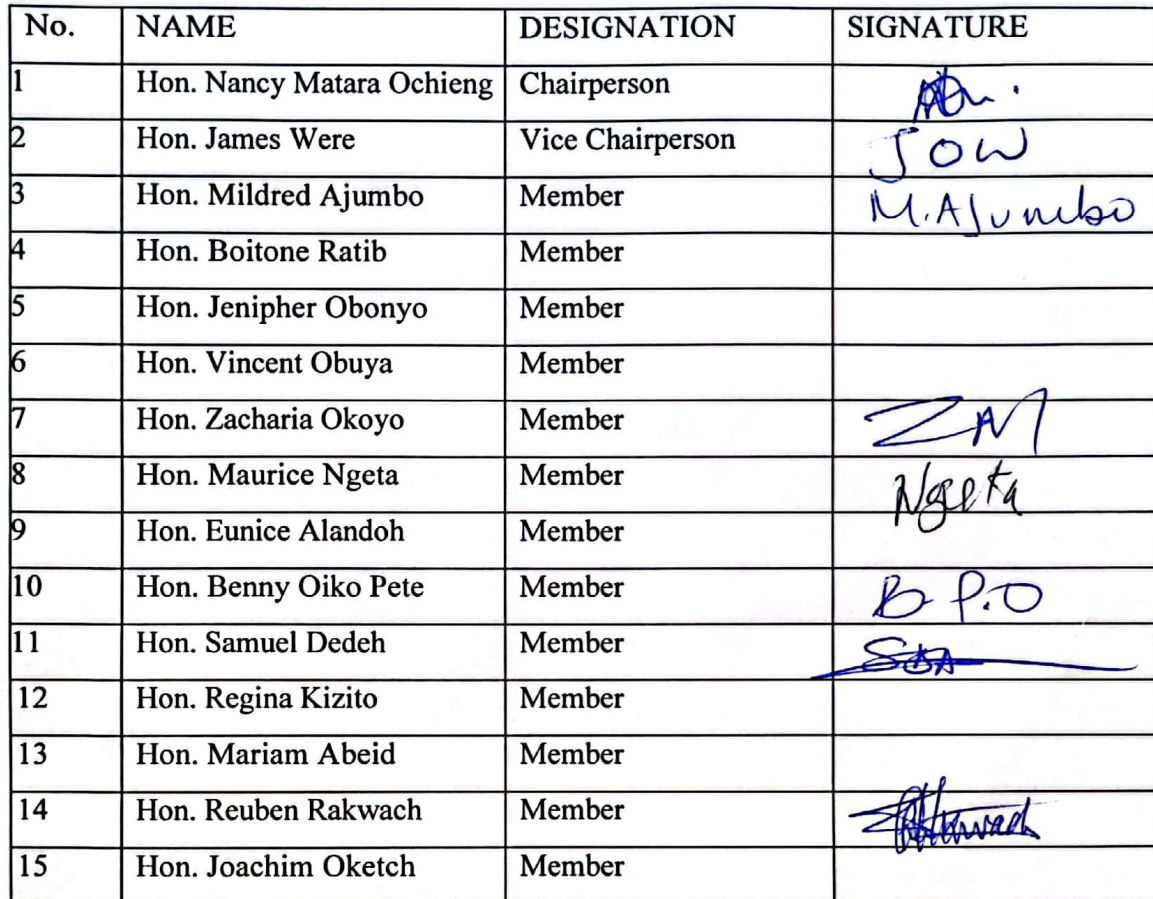 No. NAME DESIGNATION SIGNATURE
1 Hon. Nancy Matara Ochieng Chairperson
2 Hon. James Were Vice Chairperson JOW
3 Hon. Mildred Ajumbo Member M.Ajumbo
4 Hon. Boitone Ratib Member
5 Hon. Jenipher Obonyo Member
6 Hon. Vincent Obuya Member
7 Hon. Zacharia Okoyo Member
8 Hon. Maurice Ngeta Member Ngeta
9 Hon. Eunice Alandoh Member
10 Hon. Benny Oiko Pete Member B P.O
11 Hon. Samuel Dedeh Member
12 Hon. Regina Kizito Member
13 Hon. Mariam Abeid Member
14 Hon. Reuben Rakwach Member
15 Hon. Joachim Oketch Member